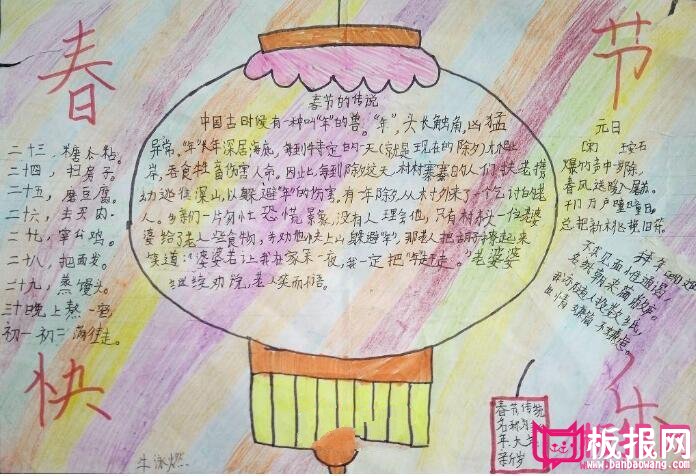 春
节
快
乐
二十三，糖瓜粘。
二十四，扫房子。
二十五，磨豆腐。
二十六，去买肉。
二十七，宰公鸡。
二十八，把面发。
二十九，蒸馒头。
三十晚上熬一宿，
初一初二满街走。
春节的传说
中国古时候有一种叫"年"的兽。"年"，头长触角，凶猛
异常。"年"长年深居海底，每到特定的一天(就是现在的除夕)才爬上
岸，吞食牲畜伤害人命。因此，每到除夕这天，村村寨寨的人们扶老携
幼逃往深山，以躲避"年"的伤害。有一年除夕，从村外来了个乞讨的老
人。乡亲们一片匆忙恐慌景象，没有人理会他，只有村头一位老婆
婆给了老人些食物，并劝他快上山躲避"年"，那老人把胡子撩起来
笑道："婆婆若让我在家呆一夜，我一定把"年"赶走。"老婆婆
继续劝说，老人笑而不语。
元日
爆竹声中一岁除，
春风送暖入屠苏。
千门万户曈曈日，
总把新桃换旧符。
拜年
不求见面惟通谒，
名纸朝来满敝庐。
我亦随人投数纸，
世情嫌简不嫌虚。
春节传统
名称
年
牛泳燃
板报网
www.banbaowang.com